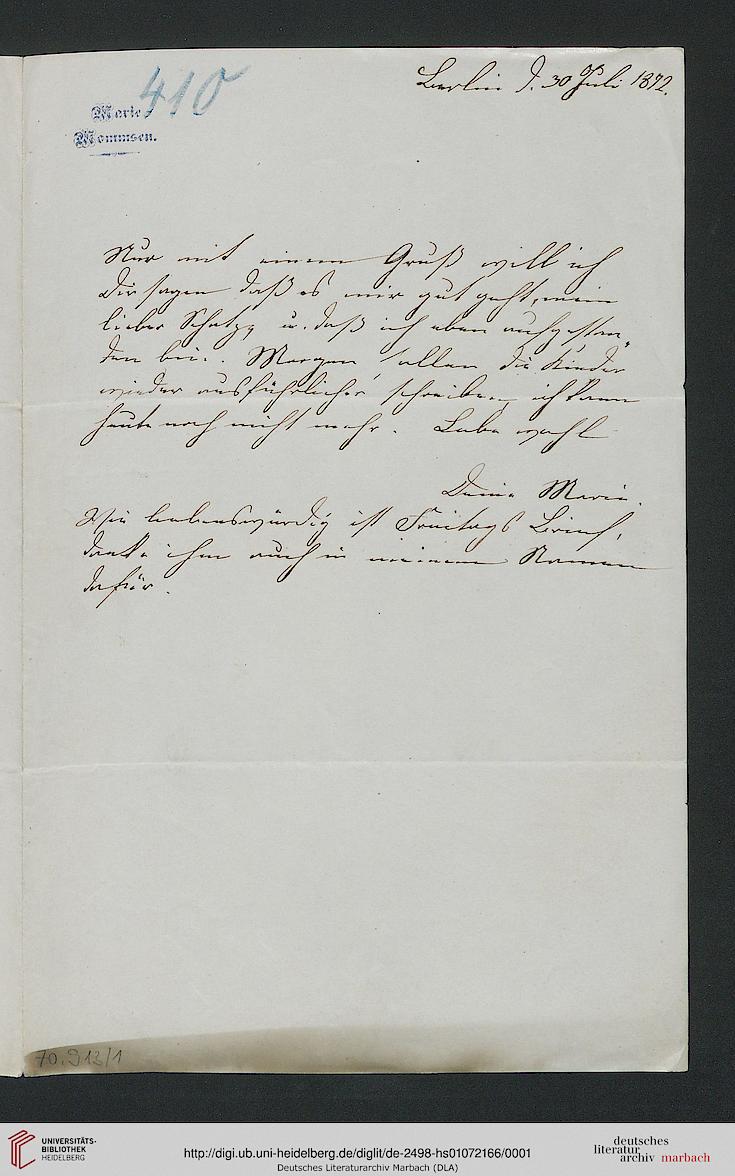 410
Marie
Mommsen.
Berlin d. 30 Juli 1872.
Nur mit einem Gruß will ich
Dir sagen daß es mir gut geht, mein
lieber Schatz, u. daß ich eben aufgestan„
den bin. Morgen sollen die Kinder
wieder ausführlicher schreiben, ich kann
heute noch nicht mehr. Lebe wohl
Deine Marie.
Wie liebenswürdig ist Freitags Brief,
danke ihm auch in meinem Namen
dafür.
70.913/1
UNIVERSITÄTS-
BIBLIOTHEK
HEIDELBERG
http://digi.ub.uni-heidelberg.de/diglit/de-2498-hs01072166/0001
Deutsches Literaturarchiv Marbach (DLA)
deutsches
literatur
archiv marbach